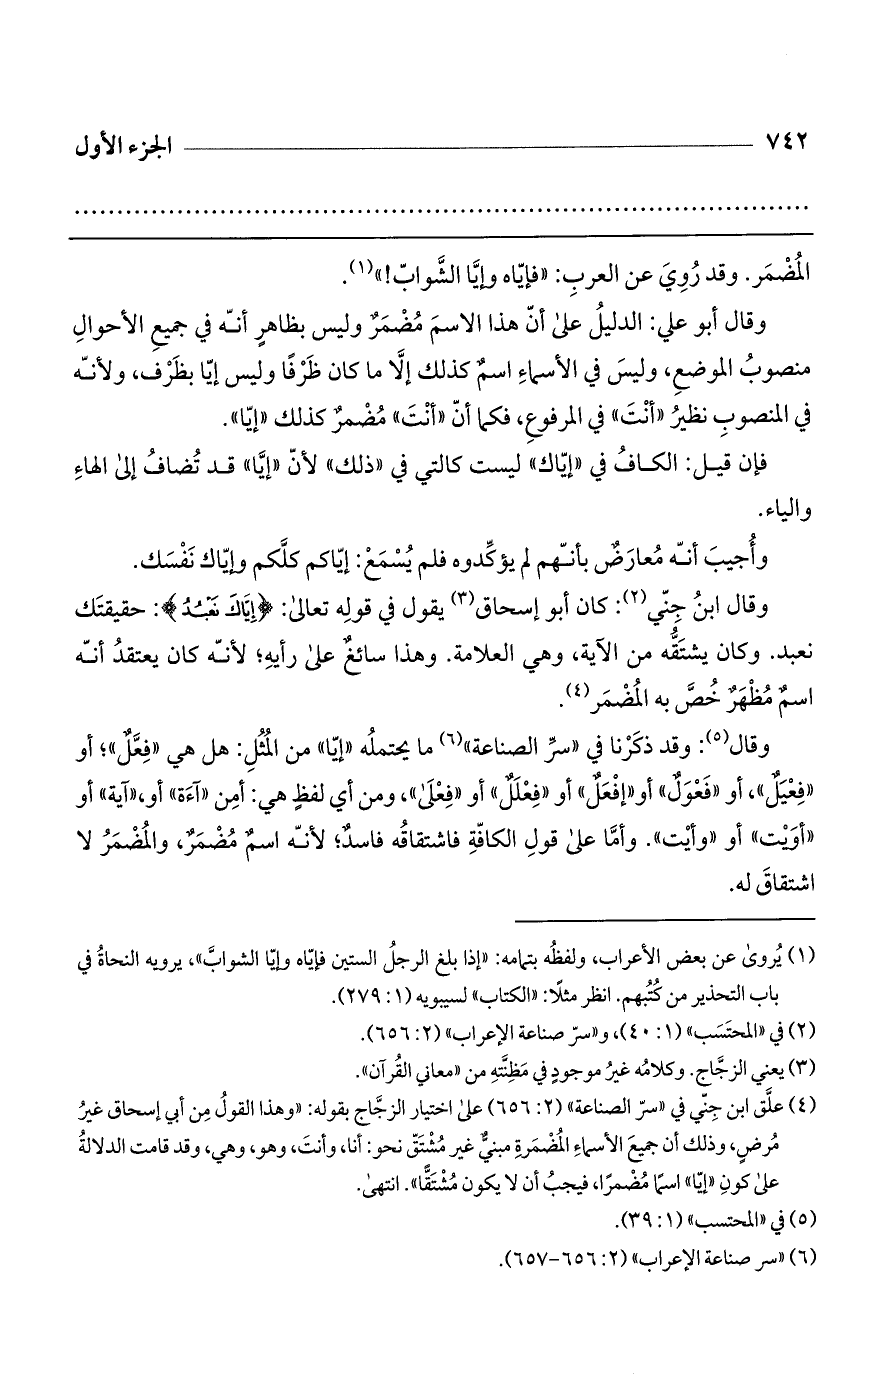 ٧٤٢ الجزء الأول
المُضْمَر. وقد رُوِيَ عن العربِ: «فإيّاه وإيَّا الشَّوابّ!»(١).
وقال أبو علي: الدليلُ على أنّ هذا الاسمَ مُضْمَرٌ وليس بظاهرٍ أنّه في جميعِ الأحوالِ
منصوبُ الموضعِ، وليسَ في الأسماءِ اسمٌ كذلك إلَّا ما كان ظَرْفًا وليس إيّا بظَرْف، ولأنّه
في المنصوبِ نظيرُ «أنْتَ» في المرفوعِ، فكما أنّ «أنْتَ» مُضْمرٌ كذلك «إيّا».
فإن قيل: الكافُ في «إيّاك» ليست كالتي في «ذلك» لأنّ «إيَّا» قد تُضافُ إلى الهاءِ
والياء.
وأُجيبَ أنّه مُعارَضٌ بأنّهم لم يؤكِّدوه فلم يُسْمَعْ: إيّاكم كلَّكم وإيّاك نَفْسَك.
وقال ابنُ جِنّي(٢): كان أبو إسحاق(٣) يقول في قولِه تعالىٰ: ﴿إِيَّاكَ نَعْبُدُ﴾: حقيقتَك
نعبد. وكان يشتَقُّه من الآية، وهي العلامة. وهذا سائغٌ علىٰ رأيهِ؛ لأنّه كان يعتقدُ أنّه
اسمٌ مُظْهَرٌ خُصَّ به المُضْمَر(٤).
وقال(٥): وقد ذكَرْنا في «سرِّ الصناعة»(٦) ما يحتملُه «إيّا» من المُثُلِ: هل هي «فِعَّلٌ»؛ أو
«فِعْيَلٌ»، أو «فَعْوَلٌ» أو«إفْعَلٌ» أو «فِعْلَلٌ» أو «فِعْلَىٰ»، ومن أي لفظٍ هي: أمِن «آءَة» أو،«آية» أو
«أوَيْت» أو «وأيْت». وأمَّا علىٰ قولِ الكافّةِ فاشتقاقُه فاسدٌ؛ لأنّه اسمٌ مُضْمَرٌ، والمُضْمَرُ لا
اشتقاقَ له.
(١) يُروىٰ عن بعض الأعراب، ولفظُه بتمامه: «إذا بلغ الرجلُ الستين فإيّاه وإيّا الشوابَّ»، يرويه النحاةُ في
باب التحذير من كُتُبهم. انظر مثلًا: «الكتاب» لسيبويه (١: ٢٧٩).
(٢) في «المحتَسَب» (١: ٤٠)، و«سرّ صناعة الإعراب» (٢: ٦٥٦).
(٣) يعني الزجَّاج. وكلامُه غيرُ موجودٍ في مَظِنَّتهِ من «معاني القُرآن».
(٤) علَّق ابن جِنّي في «سرّ الصناعة» (٢: ٦٥٦) علىٰ اختيار الزجَّاج بقوله: «وهذا القولُ مِن أبي إسحاق غيرُ
مُرضٍ، وذلك أن جميعَ الأسماءِ المُضْمَرةِ مبنيٌّ غير مُشْتَقّ نحو: أنا، وأنتَ، وهو، وهي، وقد قامت الدلالةُ
علىٰ كونِ «إيّا» اسمًا مُضْمرًا، فيجبُ أن لا يكون مُشْتَقًّا». انتهىٰ.
(٥) في «المحتسب» (١: ٣٩).
(٦) «سر صناعة الإعراب» (٢: ٦٥٦-٦٥٧).